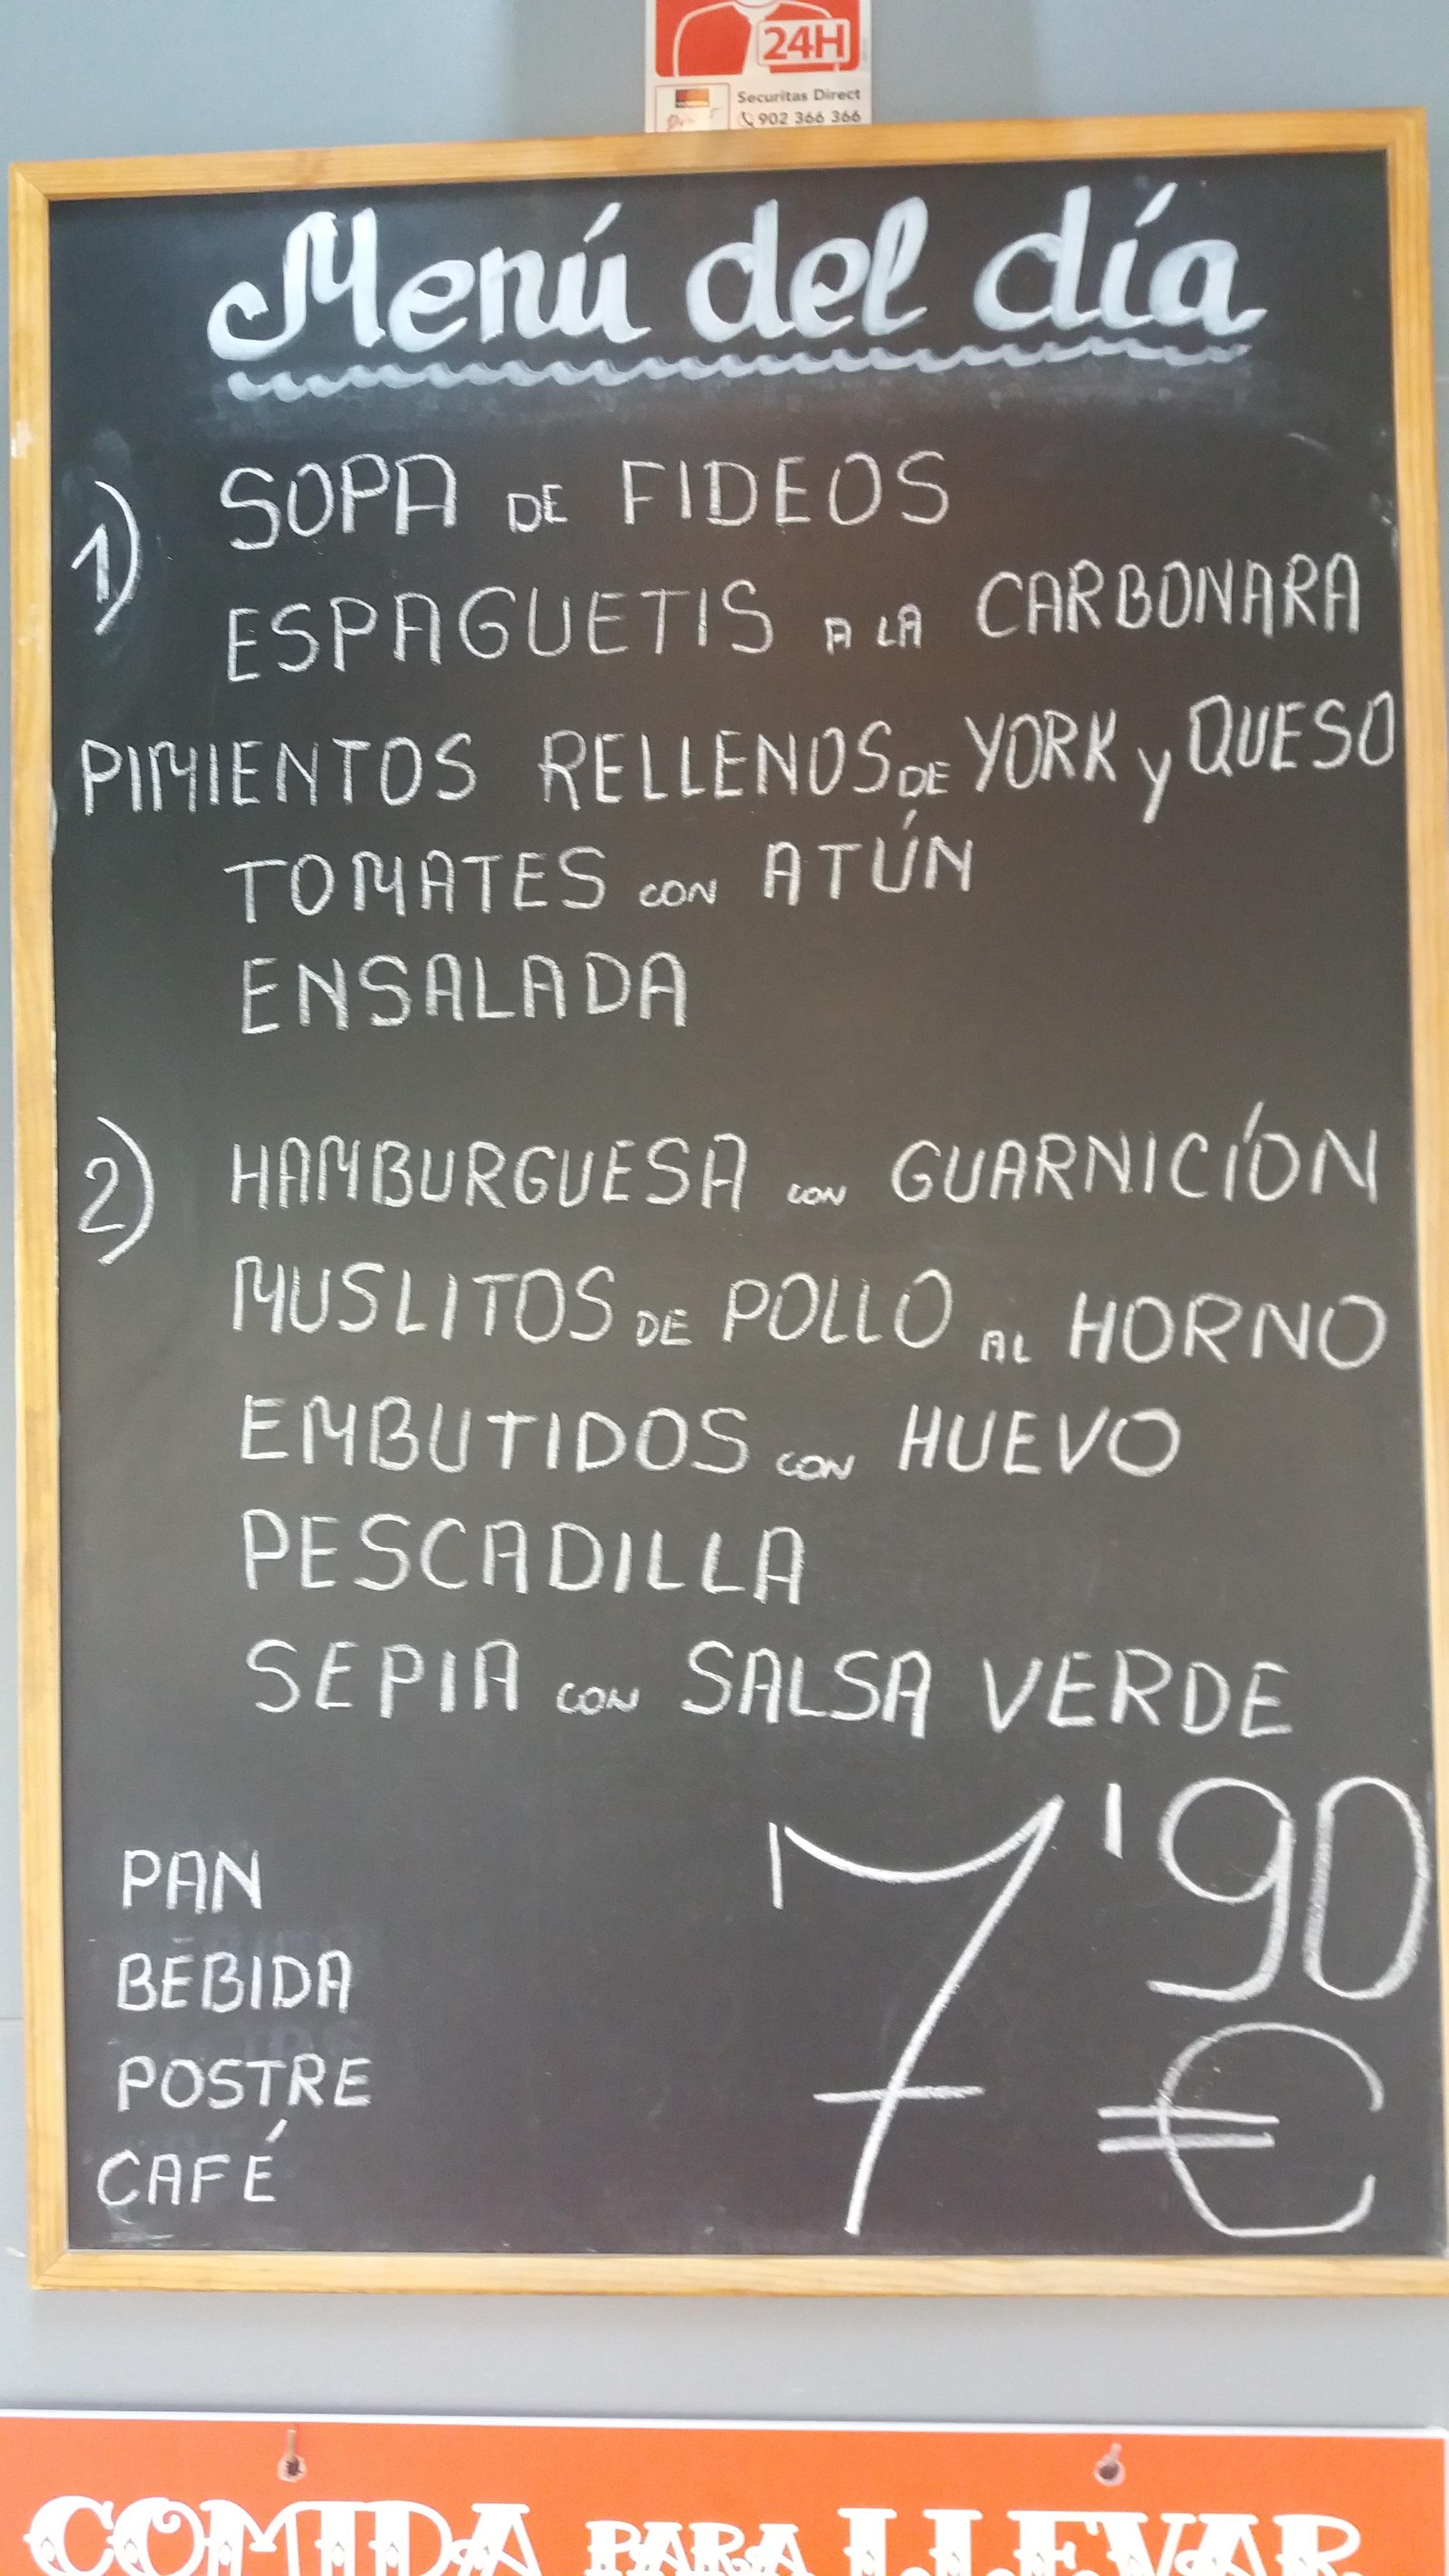 24H
Securitas Direct
902 366 366
Menú del día
1) SOPA DE FIDEOS
ESPAGUETIS A LA CARBONARA
PIMIENTOS RELLENOS DE YORK y QUESO
TOMATES CON ATÚN
ENSALADA
2) HAMBURGUESA CON GUARNICÍON
MUSLITOS DE POLLO AL HORNO
EMBUTIDOS CON HUEVO
PESCADILLA
SEPIA CON SALSA VERDE
PAN
BEBIDA
POSTRE
CAFÉ
7'90
€
COMIDA PARA LLEVAR